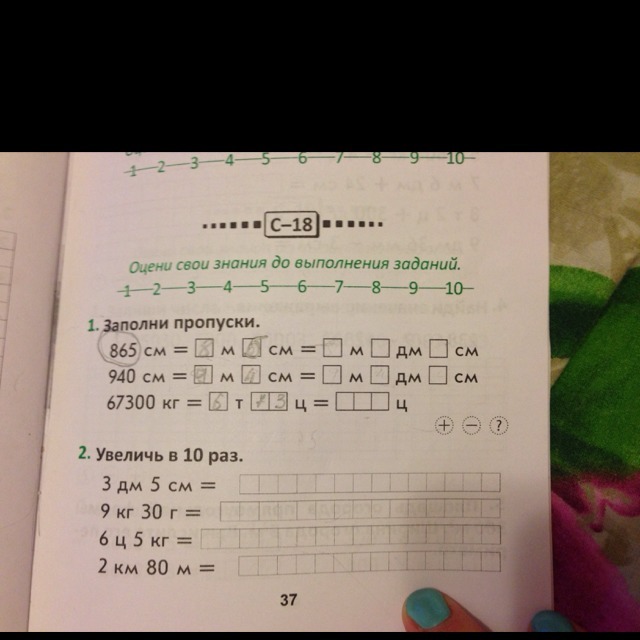 1 2 3 4 5 6 7 8 9 10
С–18
Оцени свои знания до выполнения заданий.
1 2 3 4 5 6 7 8 9 10
1. Заполни пропуски.
865 см = 8 м см = м дм см
940 см = 9 м 4 см = м дм см
67300 кг = 6 т 3 ц = ц
+ − ?
2. Увеличь в 10 раз.
3 дм 5 см =
9 кг 30 г =
6 ц 5 кг =
2 км 80 м =
37